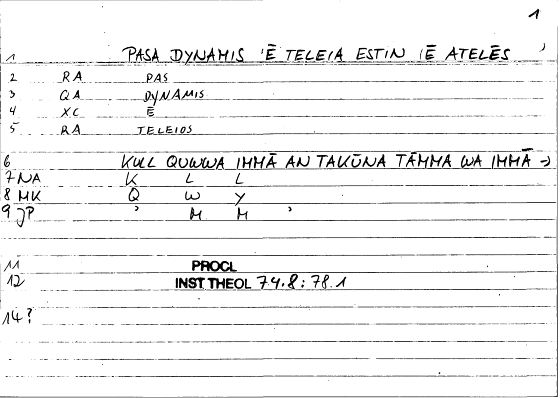 1
1 PASA DYNAMIS 'Ē TELEIA ESTIN 'Ē ATELĒS )
2 RA PAS
3 QA DYNAMIS
4 XC Ē
5 RA TELEIOS
6 KULL QUWWA IMMĀ AN TAKŪNA TĀMMA WA IMMĀ →
7 NA K L L
8 MK Q W Y
9 JP ' M M '
11 PROCL
12 INST THEOL 74.8 : 78.1
14?